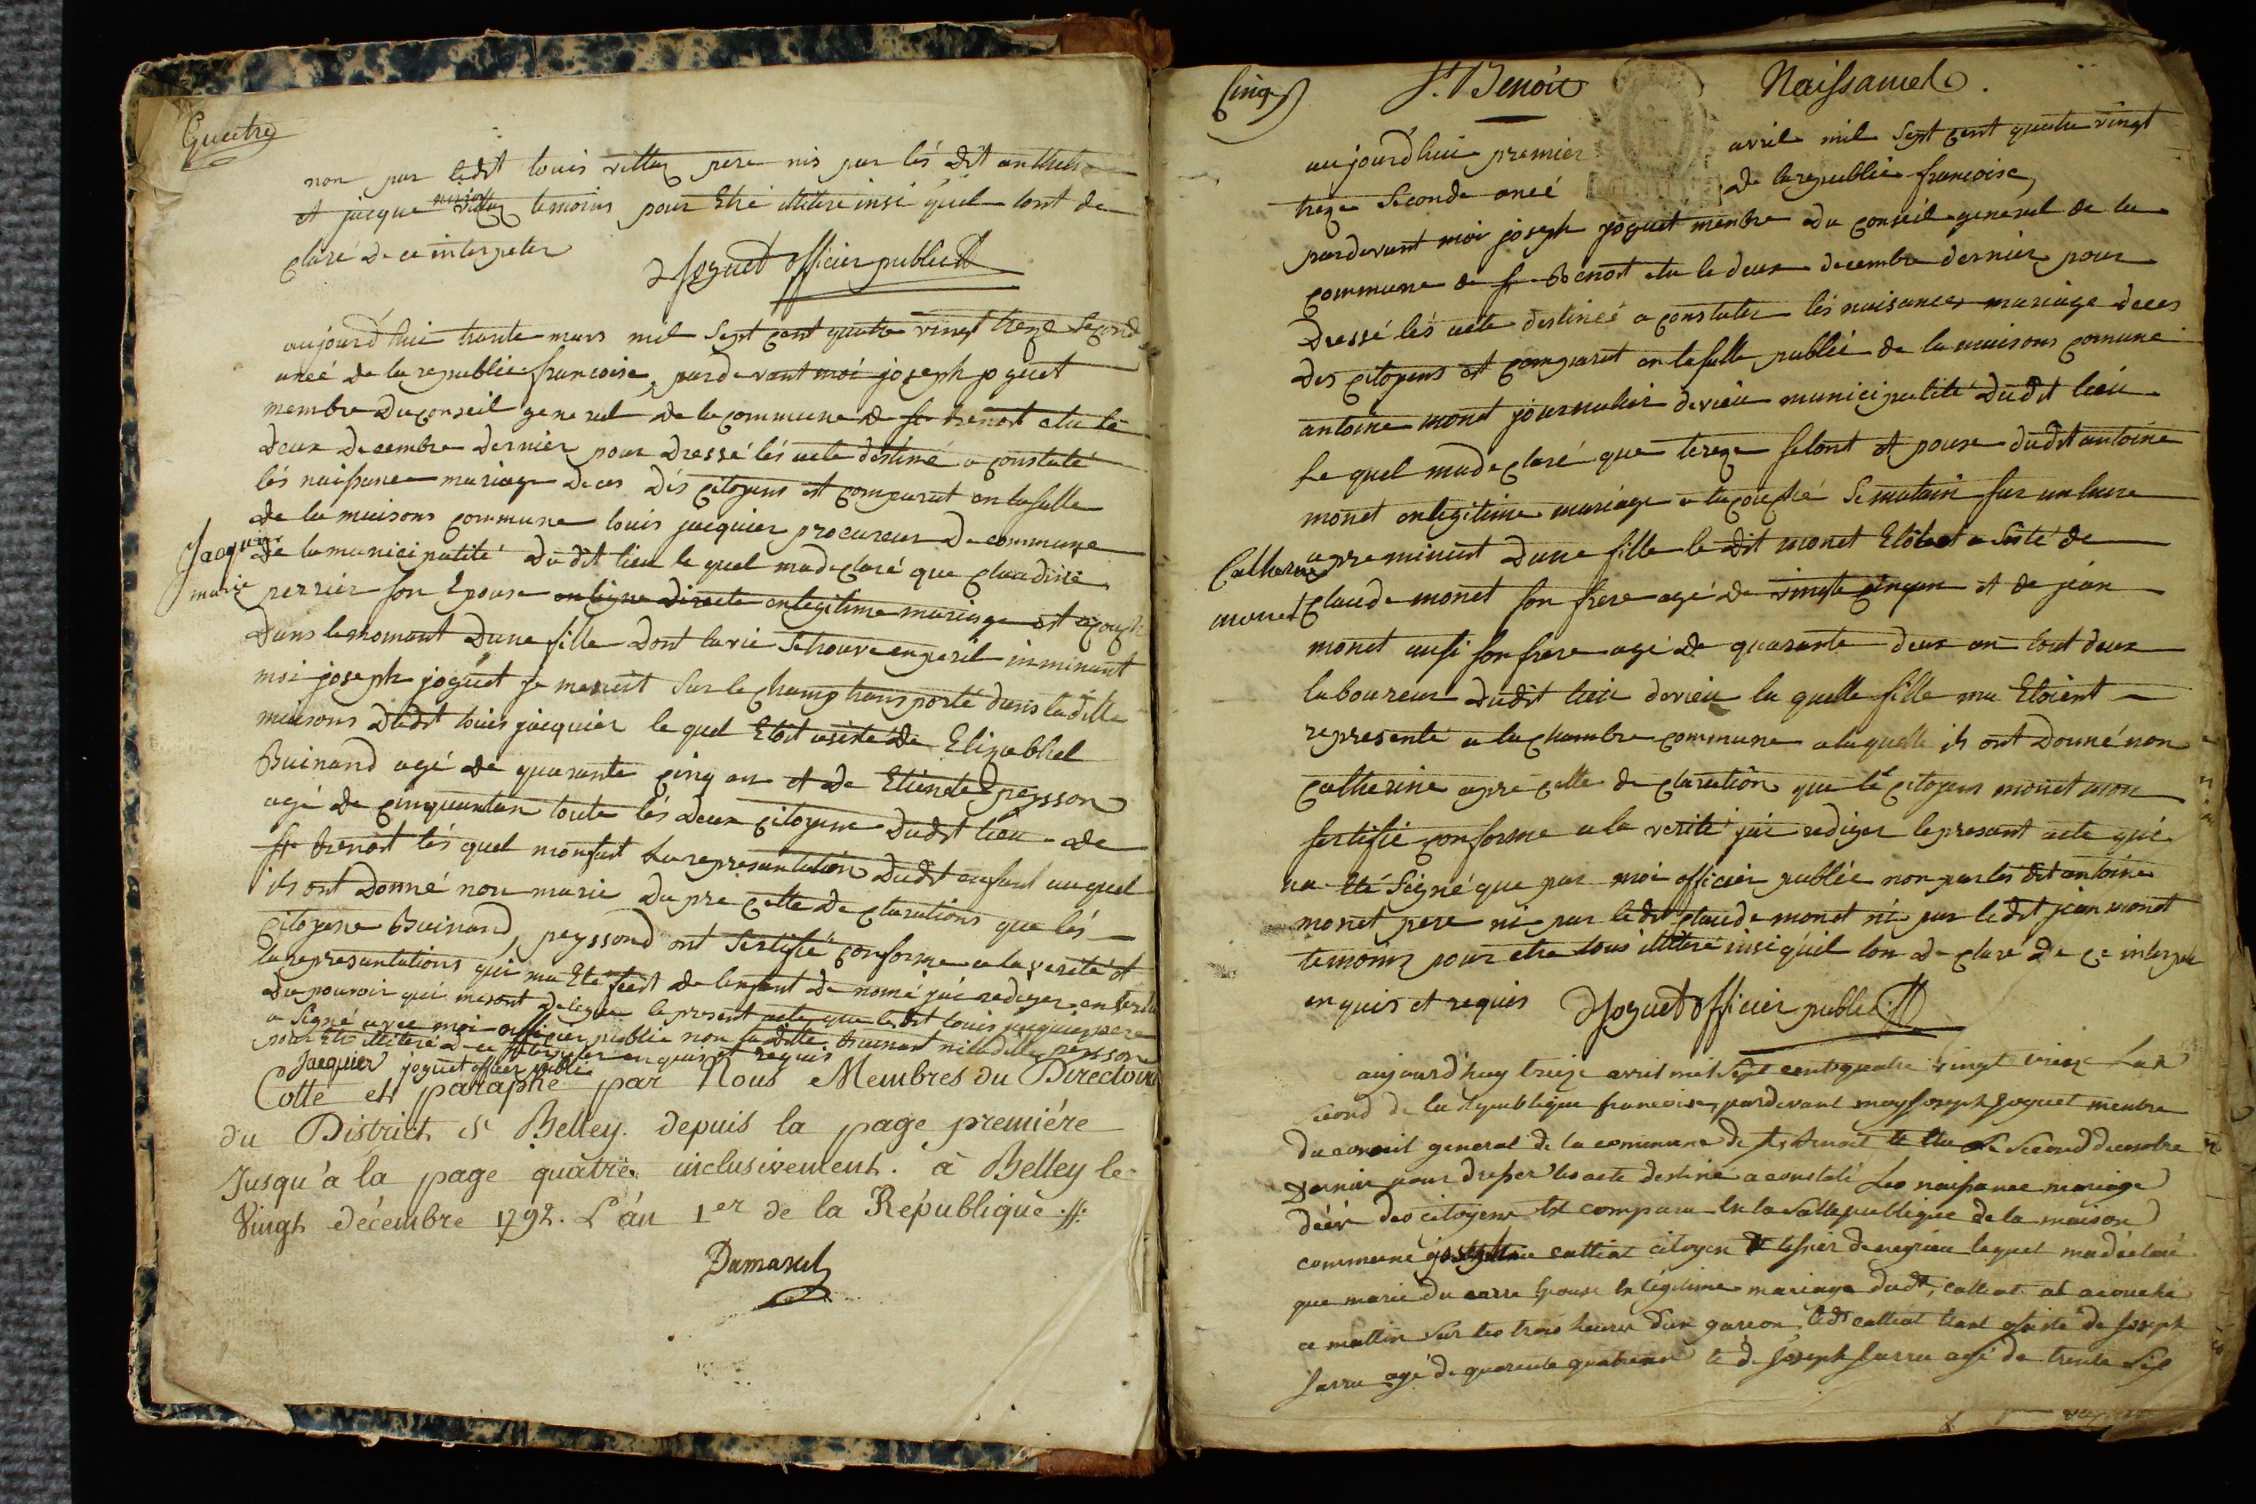 Quatre
non par ledit louis villar pere nis par lés dit anthel
et jacque temoins pour Etré illitéré insi quil lont de
claré de ce interpeter
Joguet officier public
aujourd'hui trante mars mil sept cent quatre vingt treze second
aneé de la republie francoise, pardevant moi joseph joguet
membre du conseil general de la commune de st benoit elu le
deux decembre dernier pour dressé lés acte déstiné a constaté
lés naissance mariage deces dés citoyens est comparut en la salle
de la maisons commune louis jacquier procureur de commune
de la municipalité du dit lieu le quel ma declaré que claudine
perrier son Epouse en ligne directe en legitime mariage est acouch
dans le moment dune fille dont la vie se trouve en peril inminant
moi joseph joguet je me suit sur le champ transporté dans la ditte
maisons dudit louis jacquier le quel Etoit asisté de Elizabhel
Buinand agé de quarante cinq an et de Etiende peysson
agé de cinquantan toute lés deux citoyene dudit lieu de
st benoit lés quel monfait la representation dudit enfant auquel
ils ont donné non marie du pre cette declarations que lés
citoyene Buinand, peyssond ont sertifié conforme a la verité et
la represantations qui ma Eté feet de lenfant denomé jai rediger en vertu
du pouvoir qui me sont delegue le present acte que ledit louis jacquier pere
a signé avec moi officier public non la ditte buinant ni la ditte peysson
pour Etre illiteré de ce interpeter en quis et requis
Jacquier joguet officier public
Jacquier
marie
Cotté et paraphé par Nous Membres du Directoire
du District de Belley. depuis la page premiére
Jusqu'à la page quatre inclusivement. à Belley le
Vingt décembre 1792. L'an 1er de la République.
Damarel
Cinq
St. Benoit
Naissances.
aujourd'hui premier avril mil sept cent quatre vingt
treze seconde aneé de la republie francoise,
pardevant moi joseph joguet membre du conseil general de la
commune de st Benoit elu le deux decembre dernier pour
dressé lés acte destineé a constater lés naisance mariage deces
des citoyens est comparut en la salle publié de la maisons comune
antoine monet journalier devieu municipalité dudit lieu
le quel ma declaré que tereze selont et pouse dudit antoine
monet en legitime mariage a lacouché se matain sur un hure
apre minuit dune fille le dit monet Etoit a sisté de
claude monet son frere agé de vingte cinqan et de jean
monet ausi son frere agé de quarante deux an tout deux
laboureur dudit lieu devieu la quelle fille ma Etoient
represente a la chambre commune a laquelle ils ont donné non
catherine apre cette declaration que le citoyens monet mon
sertifié conforme a la verité jai rediger le presant acte qui
na Eté signé que par moi officier publié non par lés dit antoine
monet pere ni par ledit claude monet ni par ledit jean monet
temoins pour etre tous illitéré insi quil lon declaré de ce interpele
en quis et requis Joguet officier public
Catherine
monet
aujourd'huy treize avril mil sept cent quatre vingt treize Lan
second de la Republique francoise, pardevant moy Joseph Joguet menbre
du conseil general de la commune de st benoit le second decembre
dernier pour dresser les acte destiné a constaté les naissance mariage
décés des citoyens est comparu en la salle publique de la maison
commune calliat citoyen lequel ma déclaré
que marie du carre Epouse en légitime mariage dudt. calliat at acouché
ce mattin sur les trois heures d'un garcon ledt calliat Etant assisté de Joseph
agé de quarente quatre ans et de Joseph agé de trente six